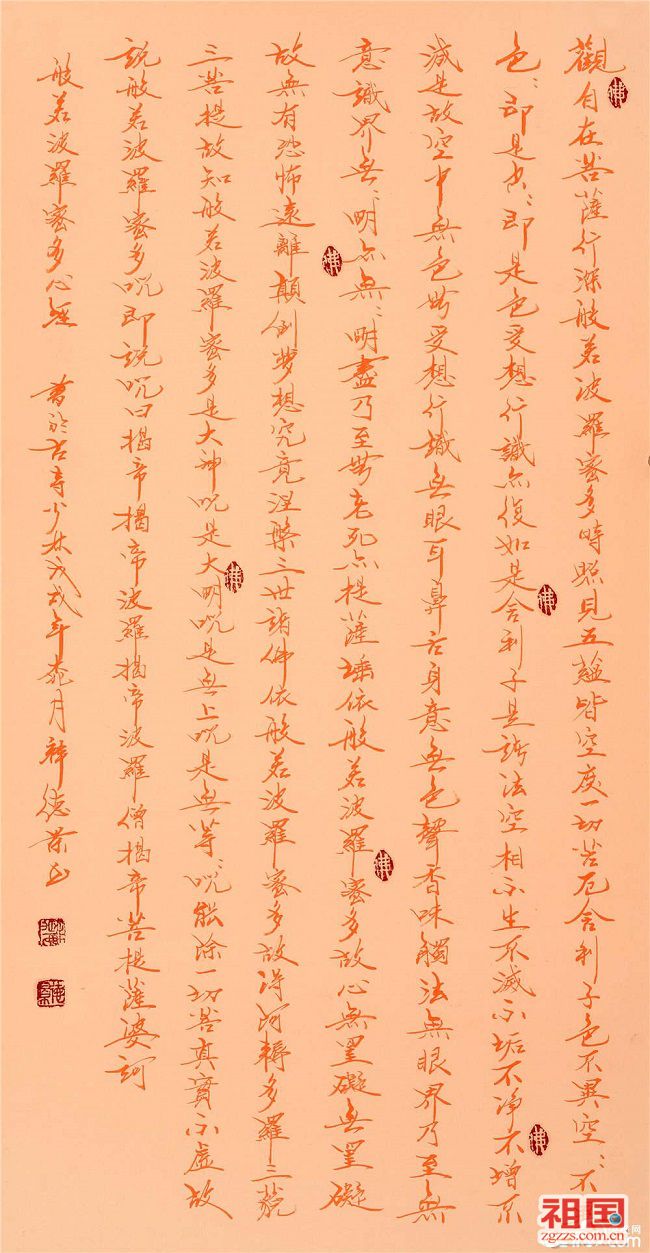 觀自在菩薩行深般若波羅蜜多時照見五蘊皆空度一切苦厄舍利子色不異空〻不
色〻即是空〻即是色受想行識亦復如是舍利子是諸法空相不生不滅不垢不净不增不
減是故空中無色無受想行識無眼耳鼻舌身意無色聲香味觸法無眼界乃至無
意識界無〻明亦無〻明盡乃至無老死亦提薩埵依般若波羅蜜多故心無罣礙無罣礙
故無有恐怖遠離顛倒夢想究竟涅槃三世諸佛依般若波羅蜜多故得阿耨多羅三藐
三菩提故知般若波羅蜜多是大神咒是大明咒是無上咒是無等〻咒能除一切苦真實不虛故
說般若波羅蜜多咒即說咒曰揭帝揭帝波羅揭帝波羅僧揭帝菩提薩婆訶
般若波羅蜜多心經 書於古寺少林戊戌年桃月釋德景
祖国
zgzzs.com.cn